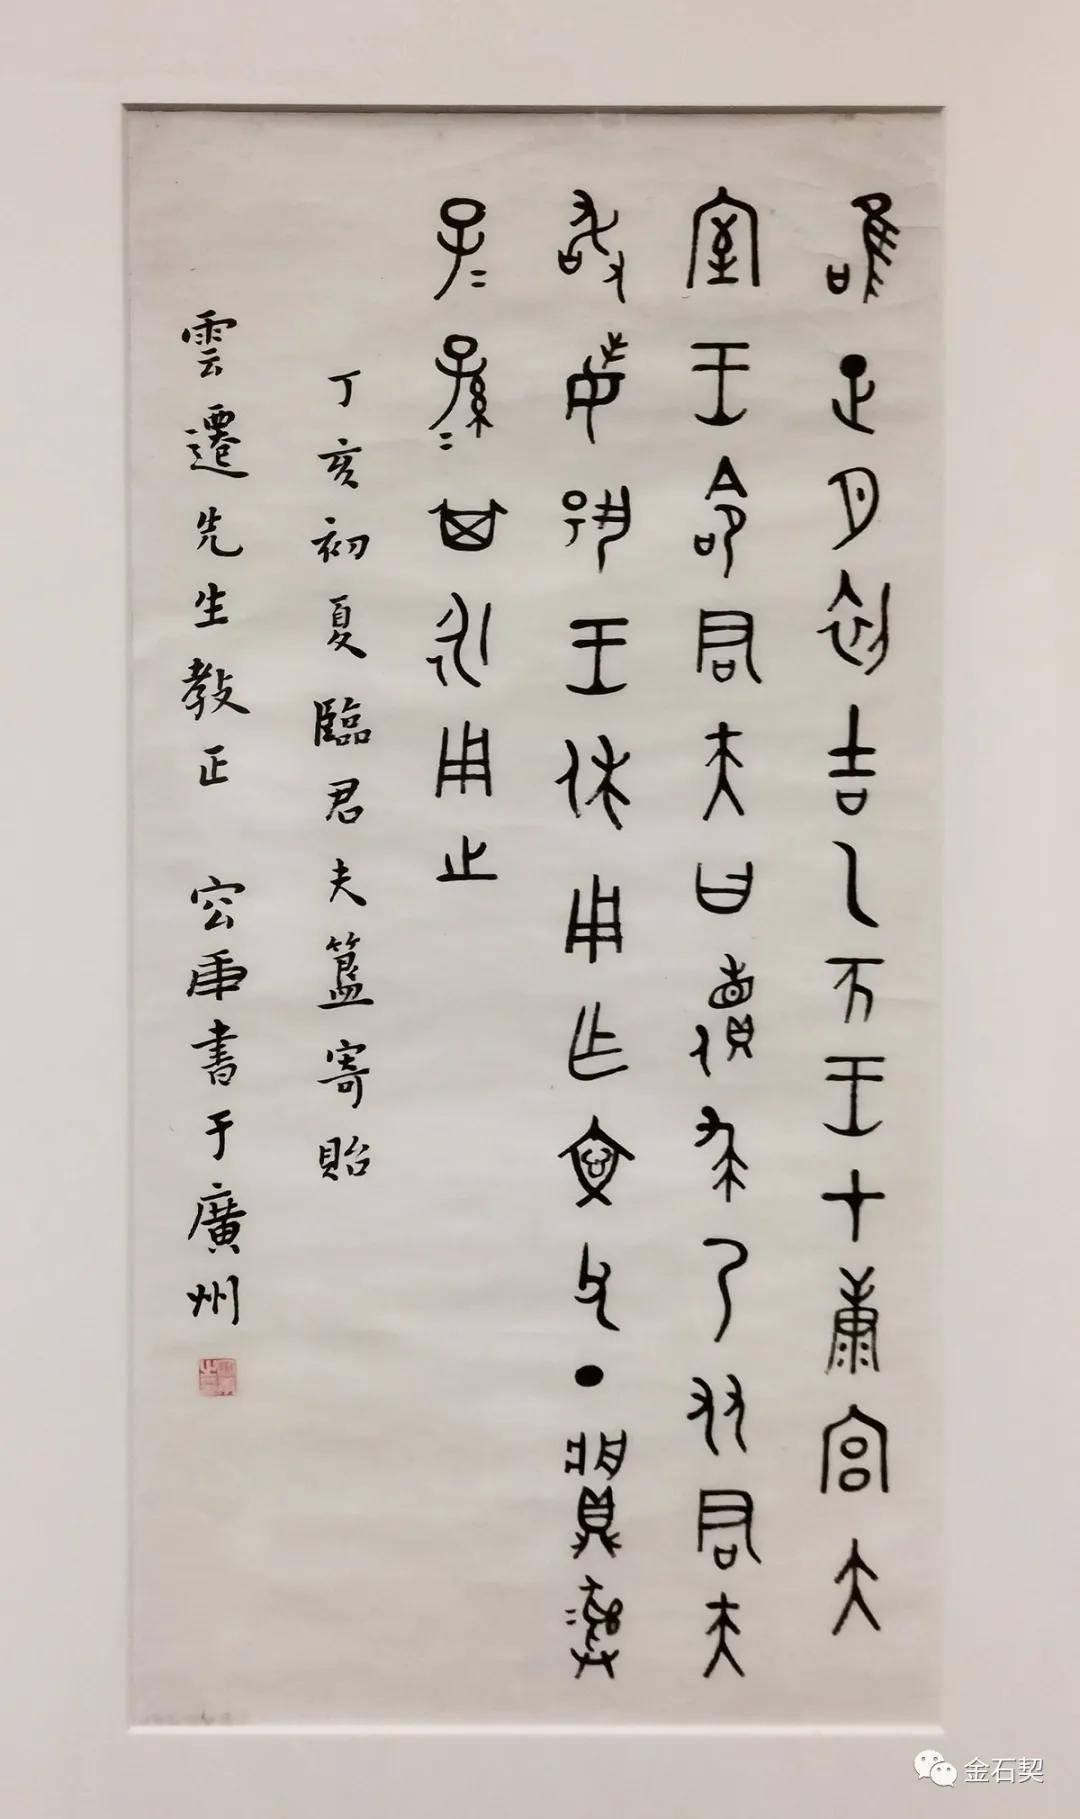 唯正月初吉乙亥王才康宮大
室王命君夫曰儥求乃友君夫
敢敏揚王休用乍文父丁䵼彝
子=孫=其永用之
丁亥初夏臨君夫簋寄貽
雲遷先生教正 容庚書于廣州
金石契